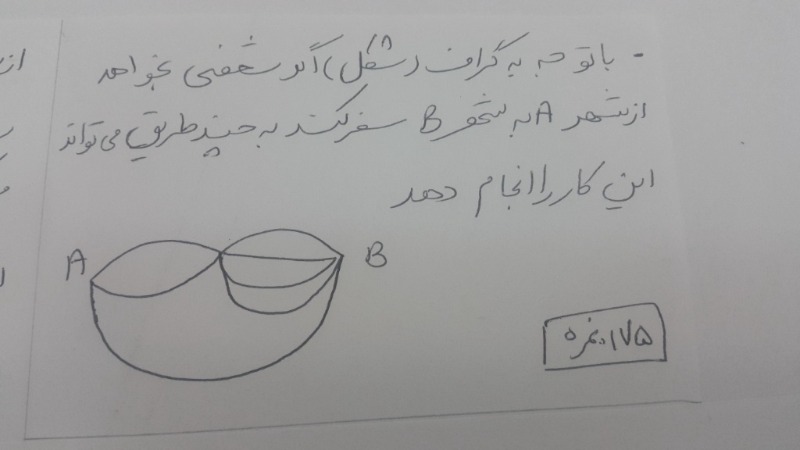 - با توجه به گراف (شکل) اگر شخصی بخواهد
از شهر A به شهر B سفر کند به چند طریق می تواند
این کار را انجام دهد
A
B
۱/۷۵ نمره